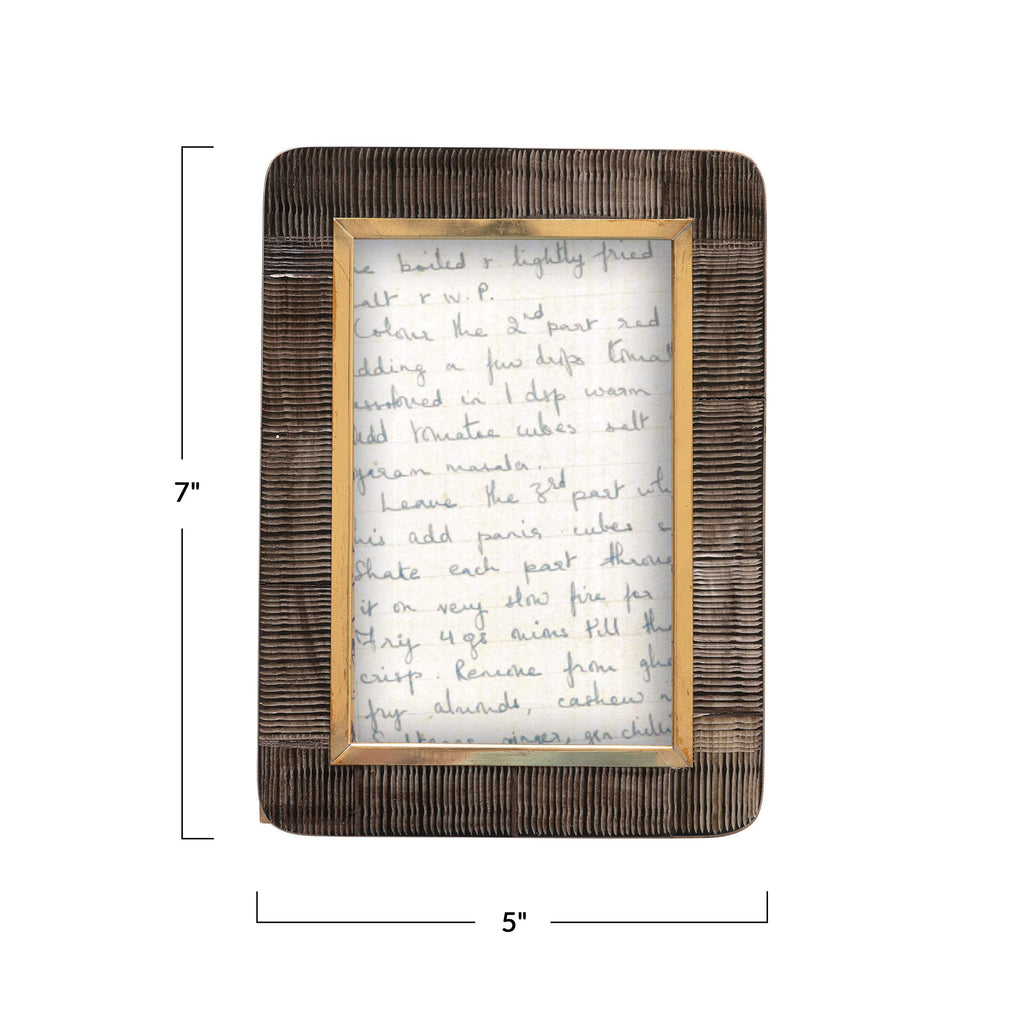 e boiled & lightly fried
alt & W.P.
Colour the 2nd part red
dding a few drops tomat
issolved in 1 dsp warm
add tomatoe cubes salt
garam masala.
Leave the 3rd part whi
his add panir cubes
Shake each part throug
it on very slow fire for
Fry 4 gs onions till th
crisp. Remove from ghe
fry almonds, cashew n
ginger, grn chilli
7"
5"